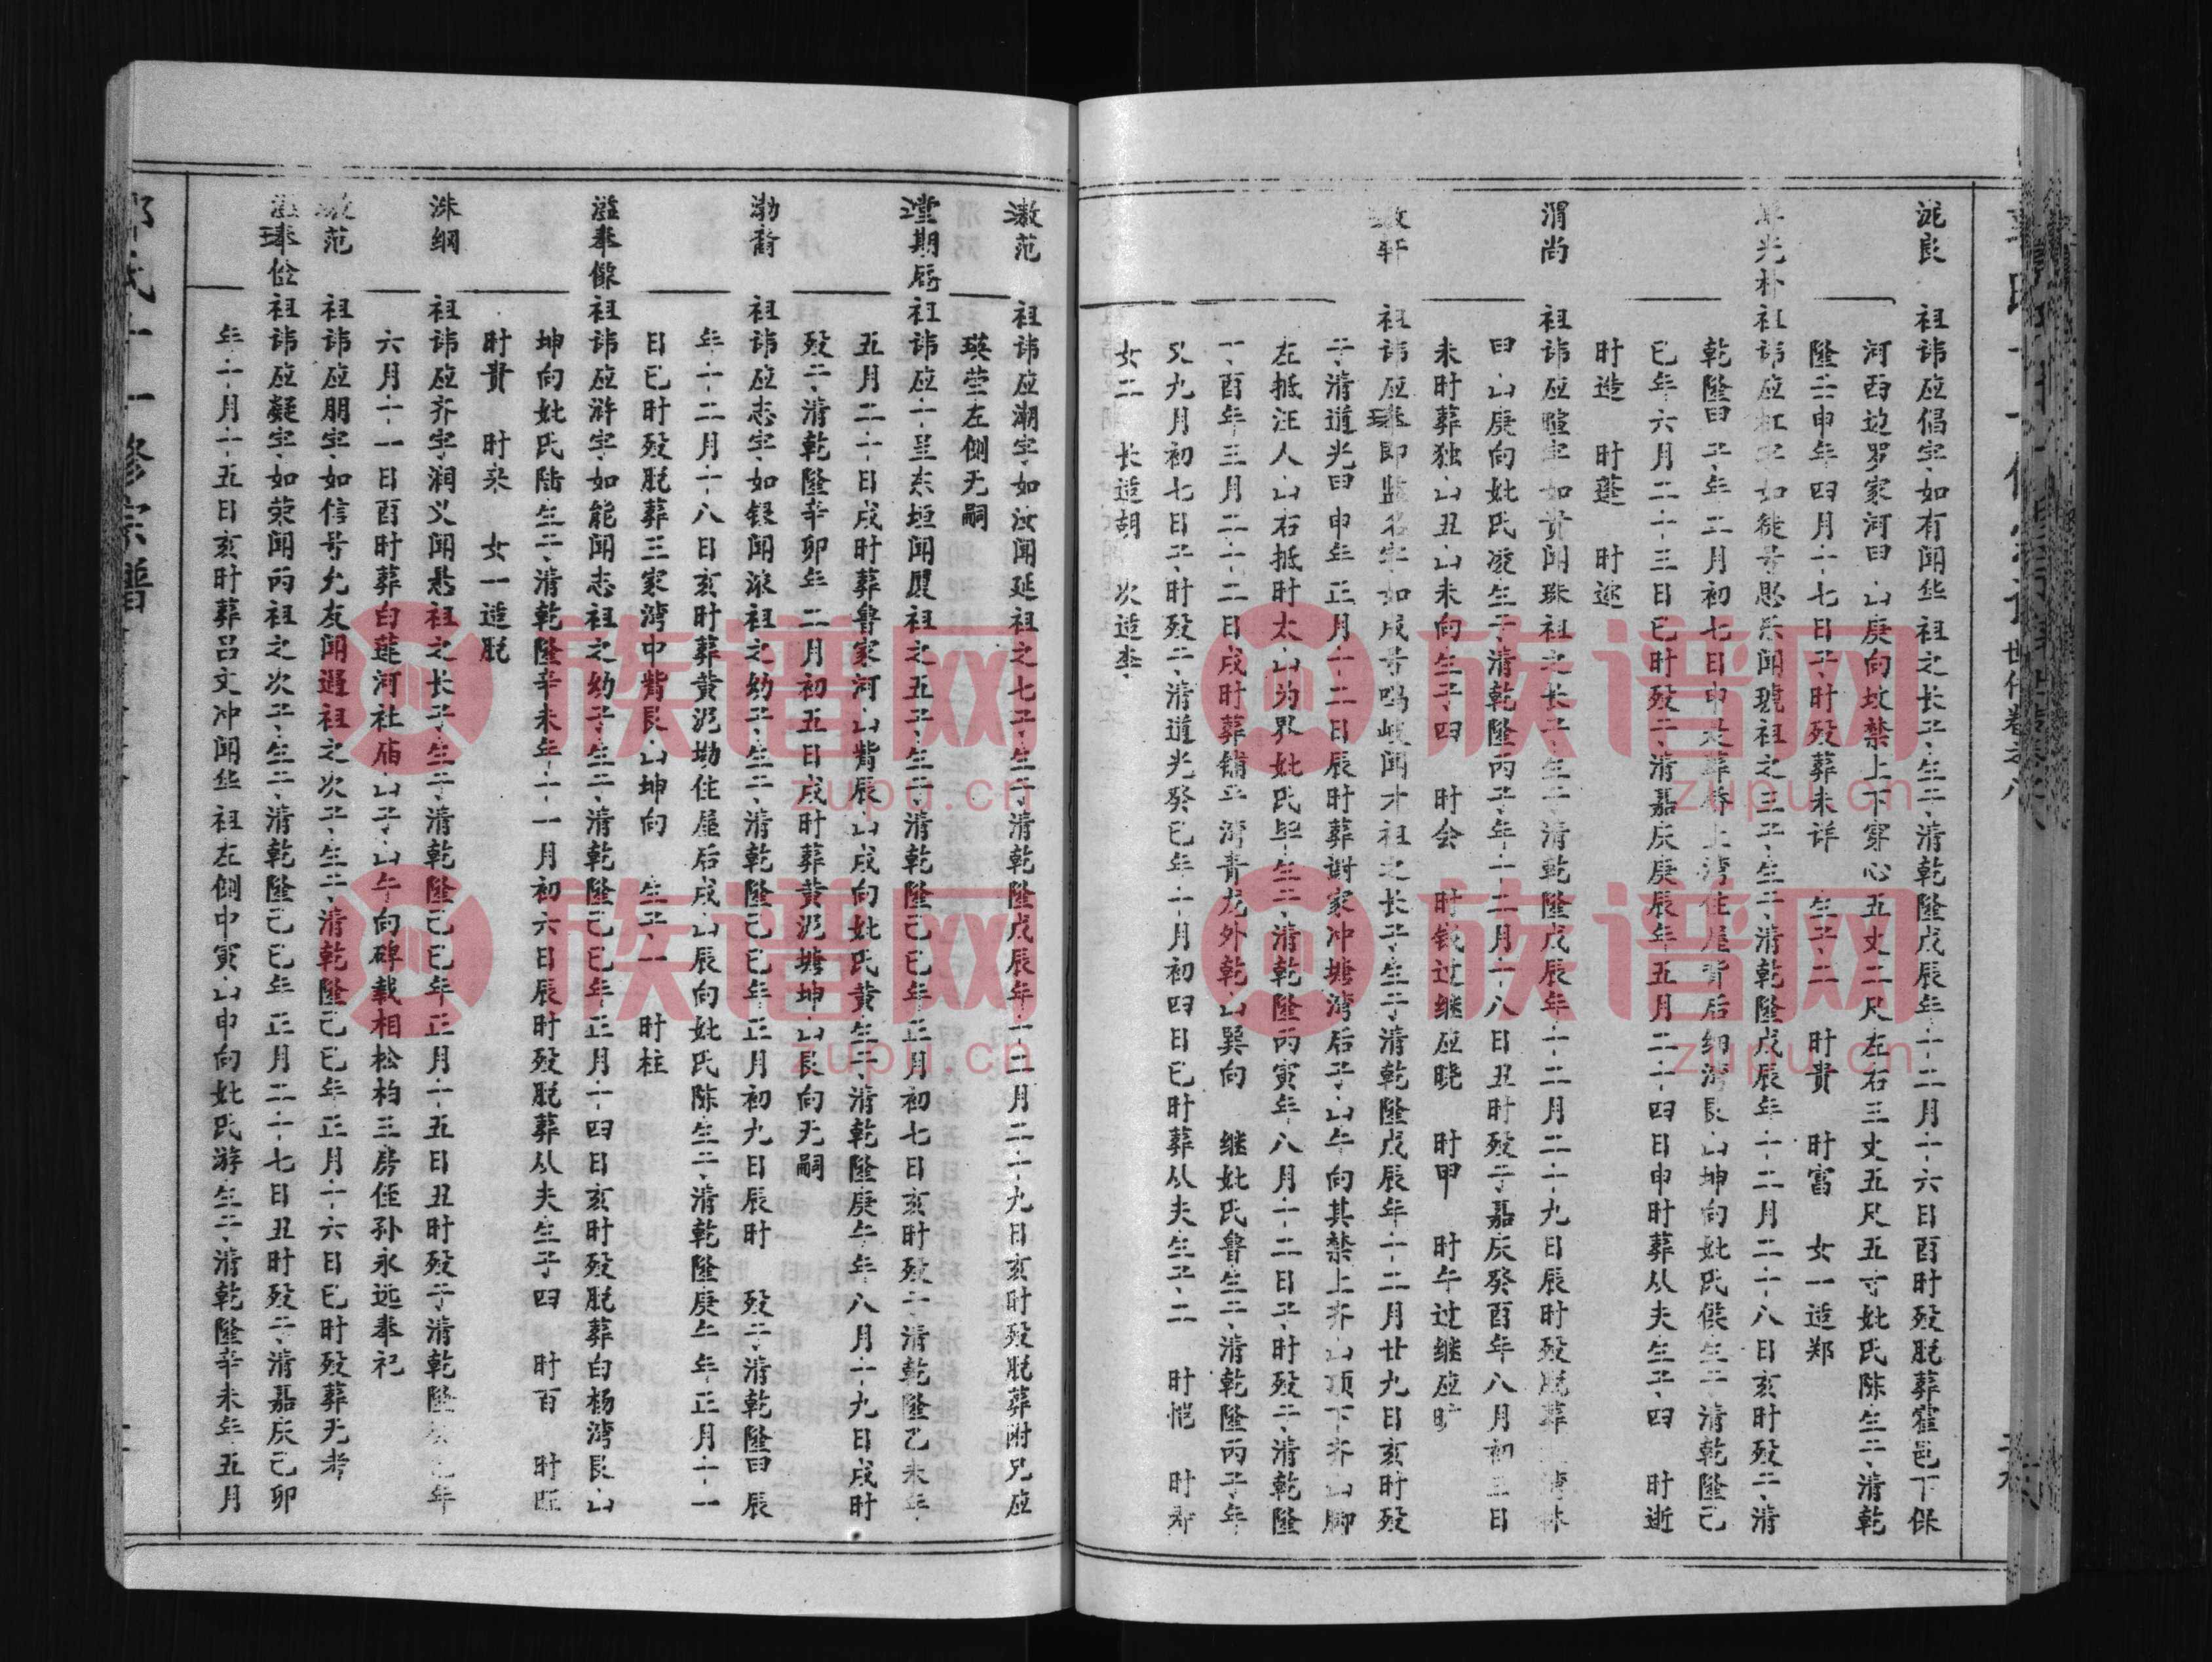 世代卷之八
泷良
祖讳应倡字如有闻华祖之长子生于清乾隆戊辰年十二月十六日酉时殁脱葬霍邑下保
河西边罗家河甲山庚向坟禁上下穿心五丈二尺左右三丈五尺五寸妣氏陈生于清乾
隆壬申年四月十七日子时殁葬未详 生子二 时贵 时富 女一适郑
光朴
祖讳应杠字如徒号思乐闻琥祖之三子生于清乾隆戊辰年十二月二十八日亥时殁于清
乾隆甲子年二月初七日申葬上湾住屋背后细湾艮山坤向妣氏侯生于清乾隆己
巳年六月二十三日巳时殁于清嘉庆庚辰年五月二十四日申时葬从夫生子四 时逝
时造 时蓬 时迩
渭尚
祖讳应暄字如贵闻珠祖之长子生于清乾隆戊辰年十二月二十九日辰时殁脱葬湾林
甲山庚向妣氏凌生于清乾隆丙子年十二月十八日丑时殁于嘉庆癸酉年八月初三日
未时葬独山丑山未向生子四 时会 时钱过继应晓 时甲 时午过继应旷
轩
祖讳应琫即监名字如成号鸣岐闻才祖之长子生于清乾隆戊辰年十二月廿九日亥时殁
于清道光甲申年正月十二日辰时葬谢家冲塘湾后子山午向其禁上齐山顶下齐山脚
左抵汪人山右抵时太山为界妣氏毕生于清乾隆丙寅年八月十二日子时殁于清乾隆
丁酉年三月二十二日戌时葬铺子湾青龙外乾山巽向 继妣氏鲁生于清乾隆丙子年
又九月初七日子时殁于清道光癸巳年十月初四日巳时葬从夫生子二 时恺 时寿
女二 长适胡 次适李
潡范
祖讳应潮字如汝闻延祖之七子生于清乾隆戊辰年十二月二十九日亥时殁脱葬附兄应
瑛茔左侧无嗣
瀅期启
祖讳应一呈东垣闻厦祖之五子生于清乾隆己巳年正月初七日亥时殁于清乾隆乙未年
五月二十日戌时葬鲁家河山觜辰山戌向妣氏黄生于清乾隆庚午年八月十九日戌时
殁于清乾隆辛卯年二月初五日戌时葬黄泥塘坤山艮向无嗣
渤裔
祖讳应志字如银闻浪祖之幼子生于清乾隆己巳年正月初九日辰时 殁于清乾隆甲辰
年十二月十八日亥时葬黄泥坳住屋后戌山辰向妣氏陈生于清乾隆庚午年正月十一
日巳时殁脱葬三家湾中觜艮山坤向 生子一 时柱
溢奉像
祖讳应浒字如能闻志祖之幼子生于清乾隆己巳年正月十四日亥时殁脱葬白杨湾艮山
坤向妣氏陆生于清乾隆辛未年十一月初六日辰时殁脱葬从夫生子四 时百 时旺
时贵 时来 女一适脱
洙纲
祖讳应齐字润义闻悬祖之长子生于清乾隆己巳年正月十五日丑时殁于清乾隆年
六月十一日酉时葬白莲河社庙山子山午向碑载相松柏三房侄孙永远奉祀
范
祖讳应朋字如信号允友闻遇祖之次子生于清乾隆己巳年正月十六日巳时殁葬无考
琫佺
祖讳应凝字如荣闻丙祖之次子生于清乾隆己巳年正月二十七日丑时殁于清嘉庆己卯
年二月十五日亥时葬吕文冲闻华祖左侧中寅山申向妣氏游生于清乾隆辛未年五月
氏十一修宗谱
族谱网
zupu.cn
族谱网
zupu.cn
族谱网
zupu.cn
族谱网
zupu.cn